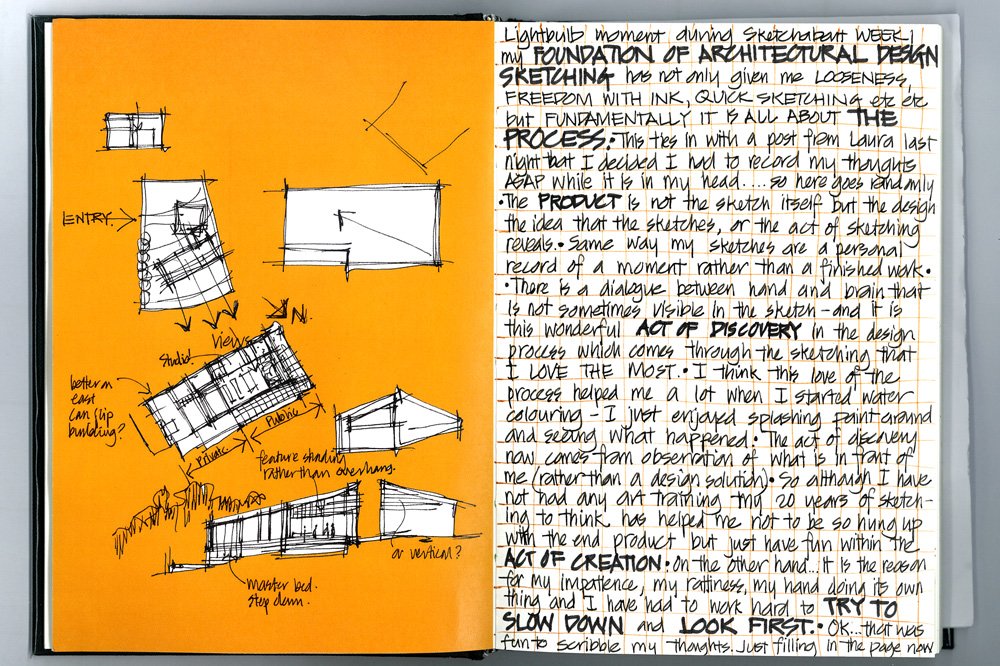 ENTRY
N.
Views
Studio!
better on
east
can flip
building?
Public
Private.
feature shading
rather than overhang.
or vertical?
master bed.
step down.
Lightbulb moment during Sketchabout WEEK;
my FOUNDATION OF ARCHITECTURAL DESIGN
SKETCHING has not only given me LOOSENESS,
FREEDOM WITH INK, QUICK SKETCHING etc etc
but FUNDAMENTALLY IT IS ALL ABOUT THE
PROCESS. This ties in with a post from Laura last
night that I decided I had to record my thoughts
ASAP while it is in my head.... so here goes randomly
•The PRODUCT is not the sketch itself but the design
the idea that the sketches, or the act of sketching
reveals. • Same way my sketches are a personal
record of a moment rather than a finished work •
•There is a dialogue between hand and brain that
is not sometimes visible in the sketch - and it is
this wonderful ACT OF DISCOVERY in the design
process which comes through the sketching that
I LOVE THE MOST. • I think this love of the
process helped me a lot when I started water
colouring - I just enjoyed splashing paint around
and seeing what happened • The act of discovery
now comes from observation of what is in front of
me (rather than a design solution) • So although I have
not had any art training my 20 years of sketch-
ing to think has helped me not to be so hung up
with the end product but just have fun within the
ACT OF CREATION • On the other hand... it is the reason
for my impatience, my rattiness, my hand doing its own
thing and I have had to work hard to TRY TO
SLOW DOWN and LOOK FIRST. • OK...that was
fun to scribble my thoughts. Just filling in the page now